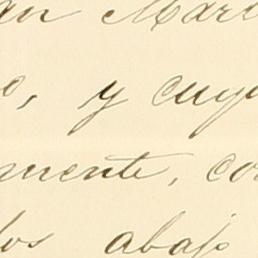 an Mar
o, y cuy
mente, co
los abajo